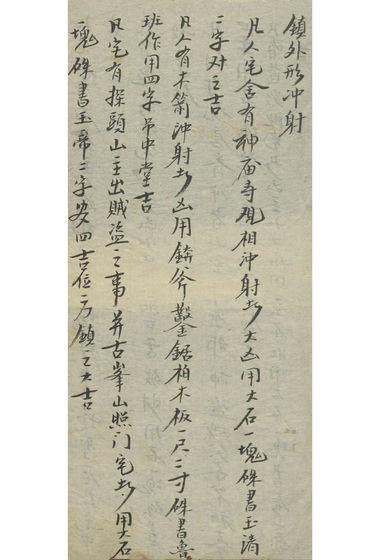 鎮外形冲射
凡人宅舍有神庙寺观相冲射者大凶用大石一塊硃書玉清
二字对之吉
凡人有木箭冲射者凶用錛斧鑿鋸柏木板一尺二寸硃書魯
班作用四字吊中堂吉
凡宅有探頭山主出賊盗之事并古峯山照门宅者用大石
一塊硃書玉帝二字安四吉位方鎮之大吉